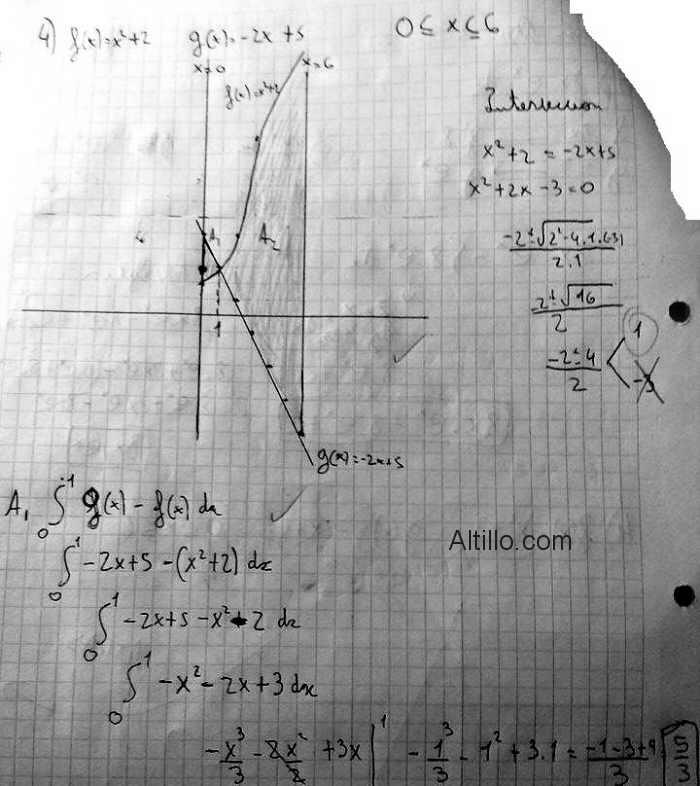 4) f(x)=x²+2 g(x)=-2x+5 0≤x≤6
x=0 x=6
f(x)=x²+2
A₁ A₂
1
g(x)=-2x+5
Interseccion
x²+2 = -2x+5
x²+2x-3=0
-2±√2²-4.1.(-3)
2.1
-2±√16
2
-2±4
2
1
-3
A₁ ∫₀¹ g(x) - f(x) dx
Altillo.com
∫₀¹ -2x+5-(x²+2) dx
∫₀¹ -2x+5-x²-2 dx
∫₀¹ -x²-2x+3 dx
-x³/3 - 2x²/2 + 3x |¹ - 1³/3 - 1² + 3.1 = -1-3+9/3 5/3